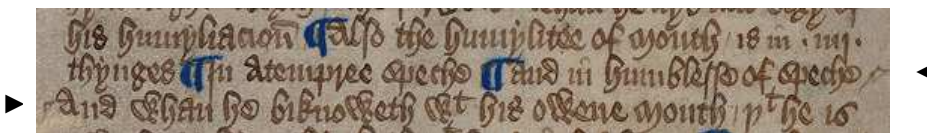 his humyliacion ¶ Also the humylitee of mouth / is in · iiij ·
thynges ¶ In atempree speche ¶ and in humblesse of speche /
And whan he biknoweth wt his owene mouth / þt he is